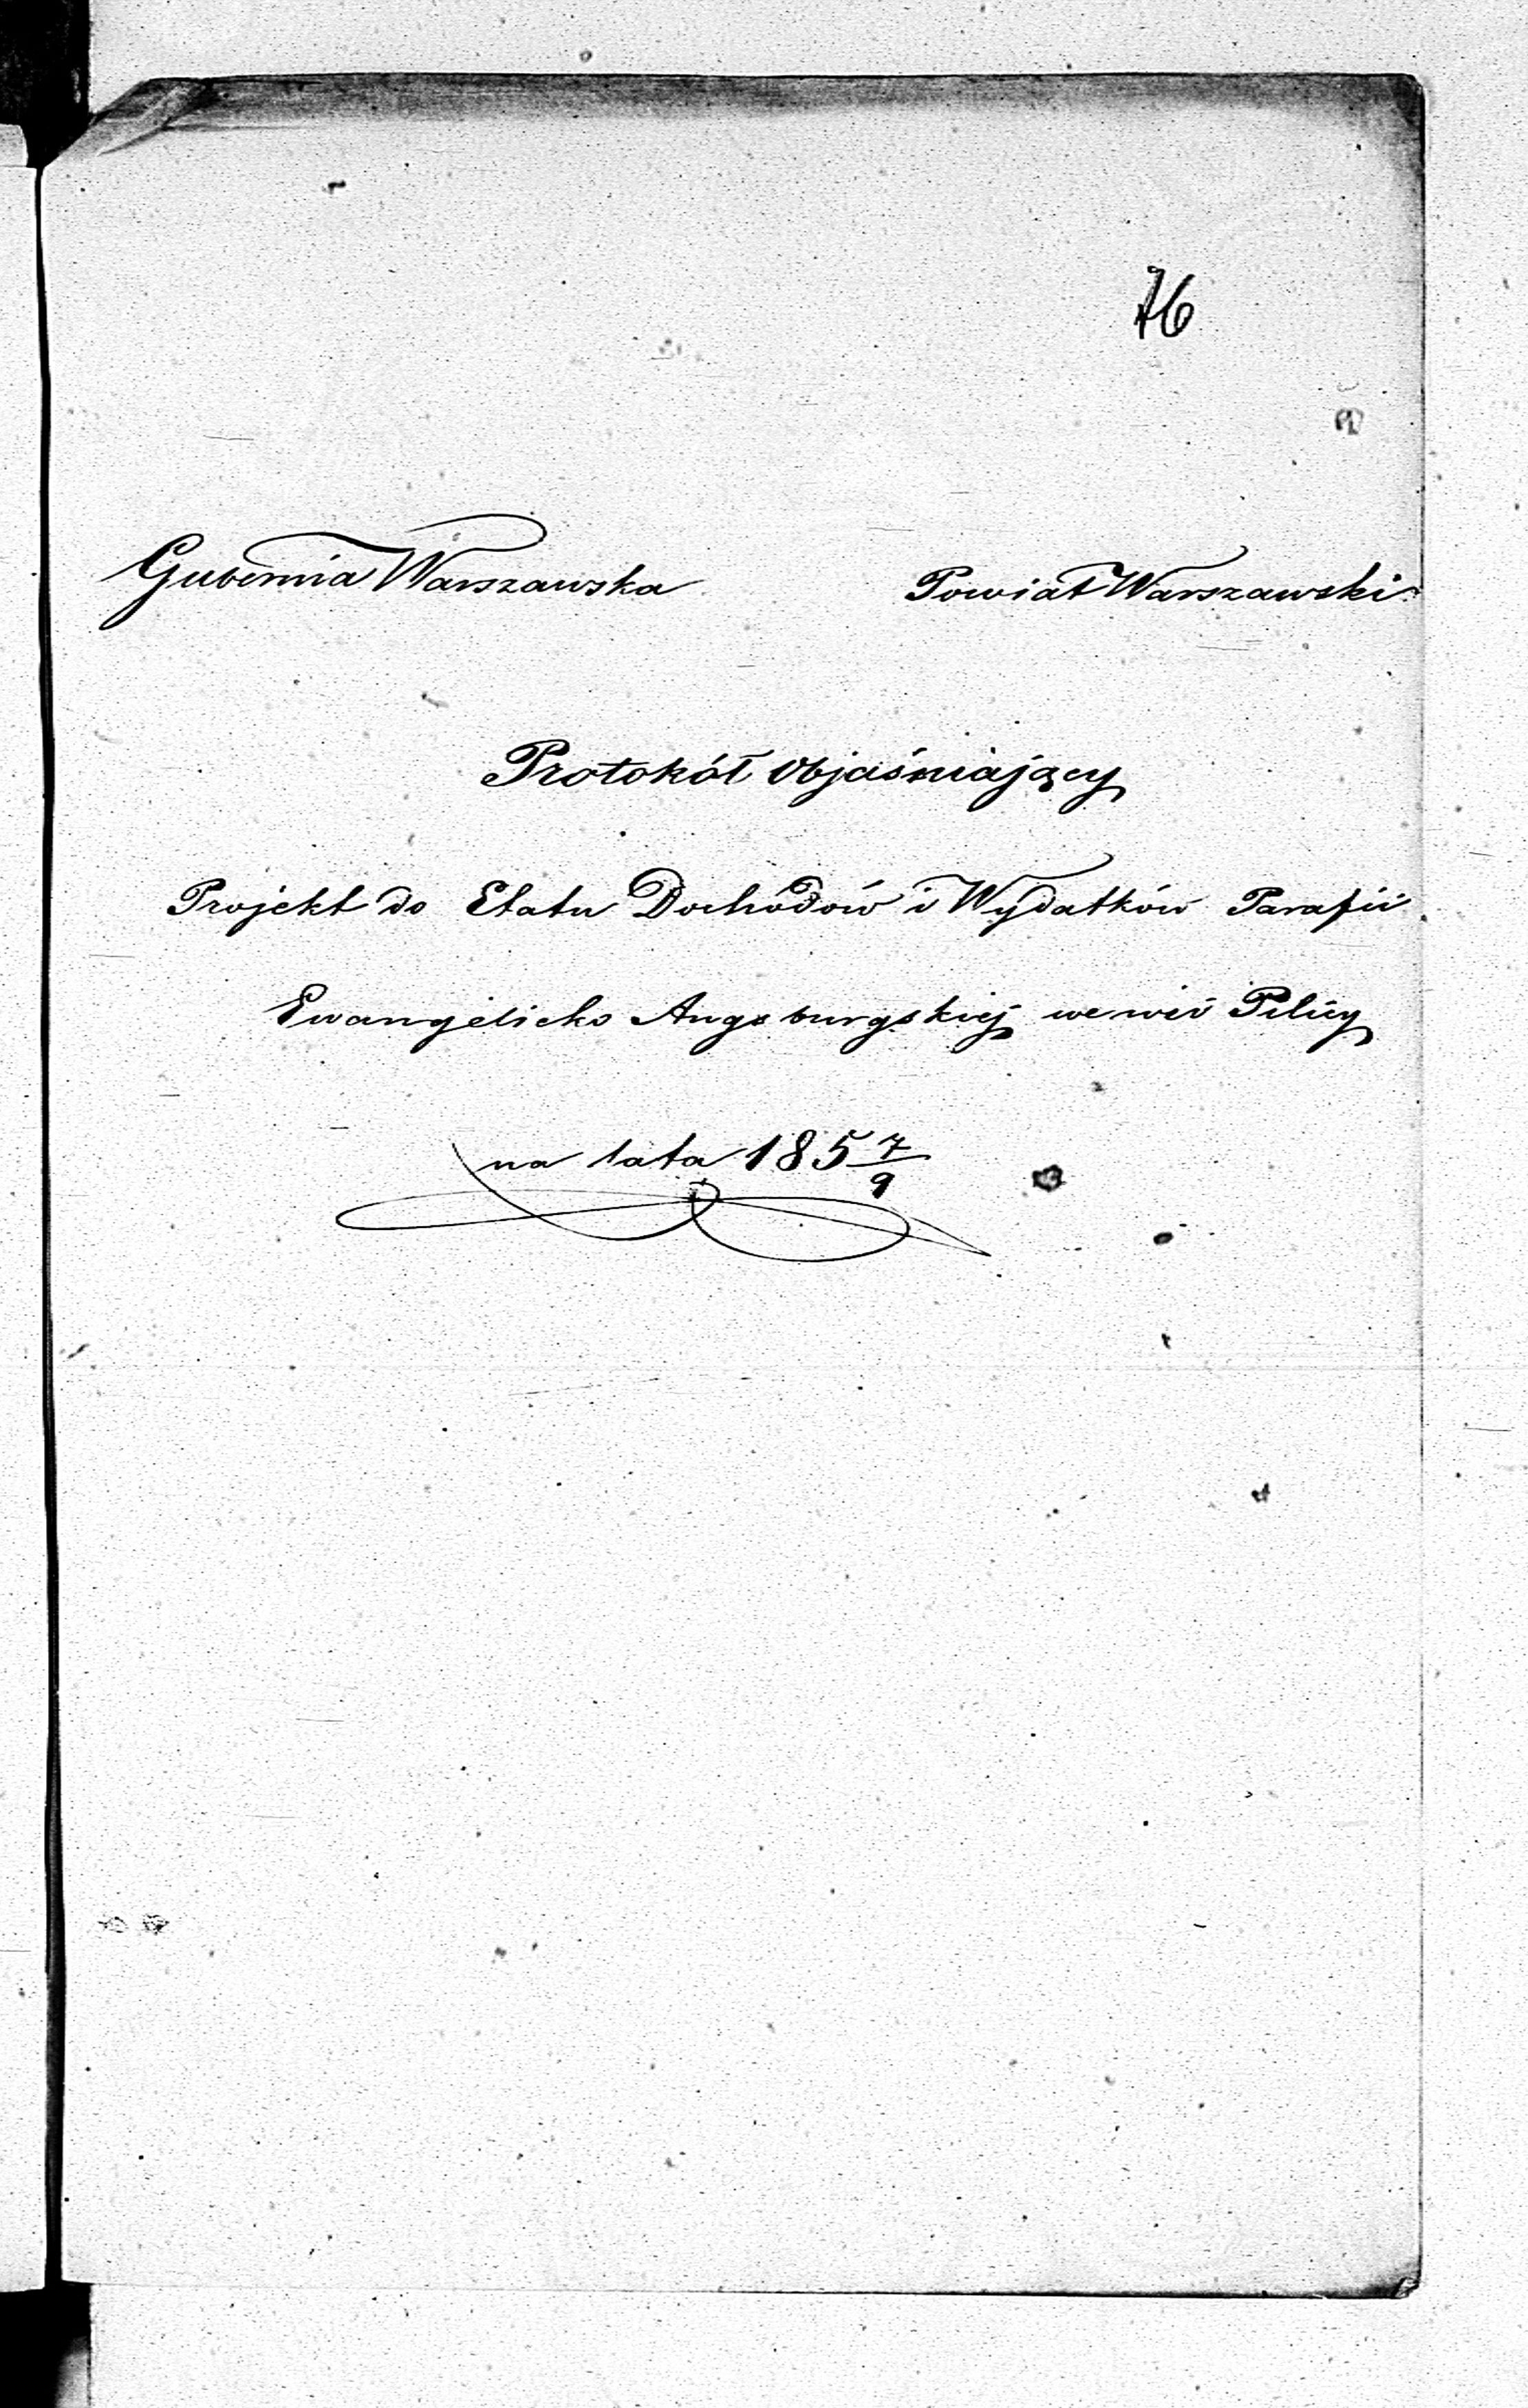 76
Gubernia Warszawska Powiat Warszawski
Protokół Objaśniający
Projekt do Etatu Dochodów i Wydatków Parafii
Ewangelicko Augsburgskiej we wsi Pilicy
na lata 185 7/9